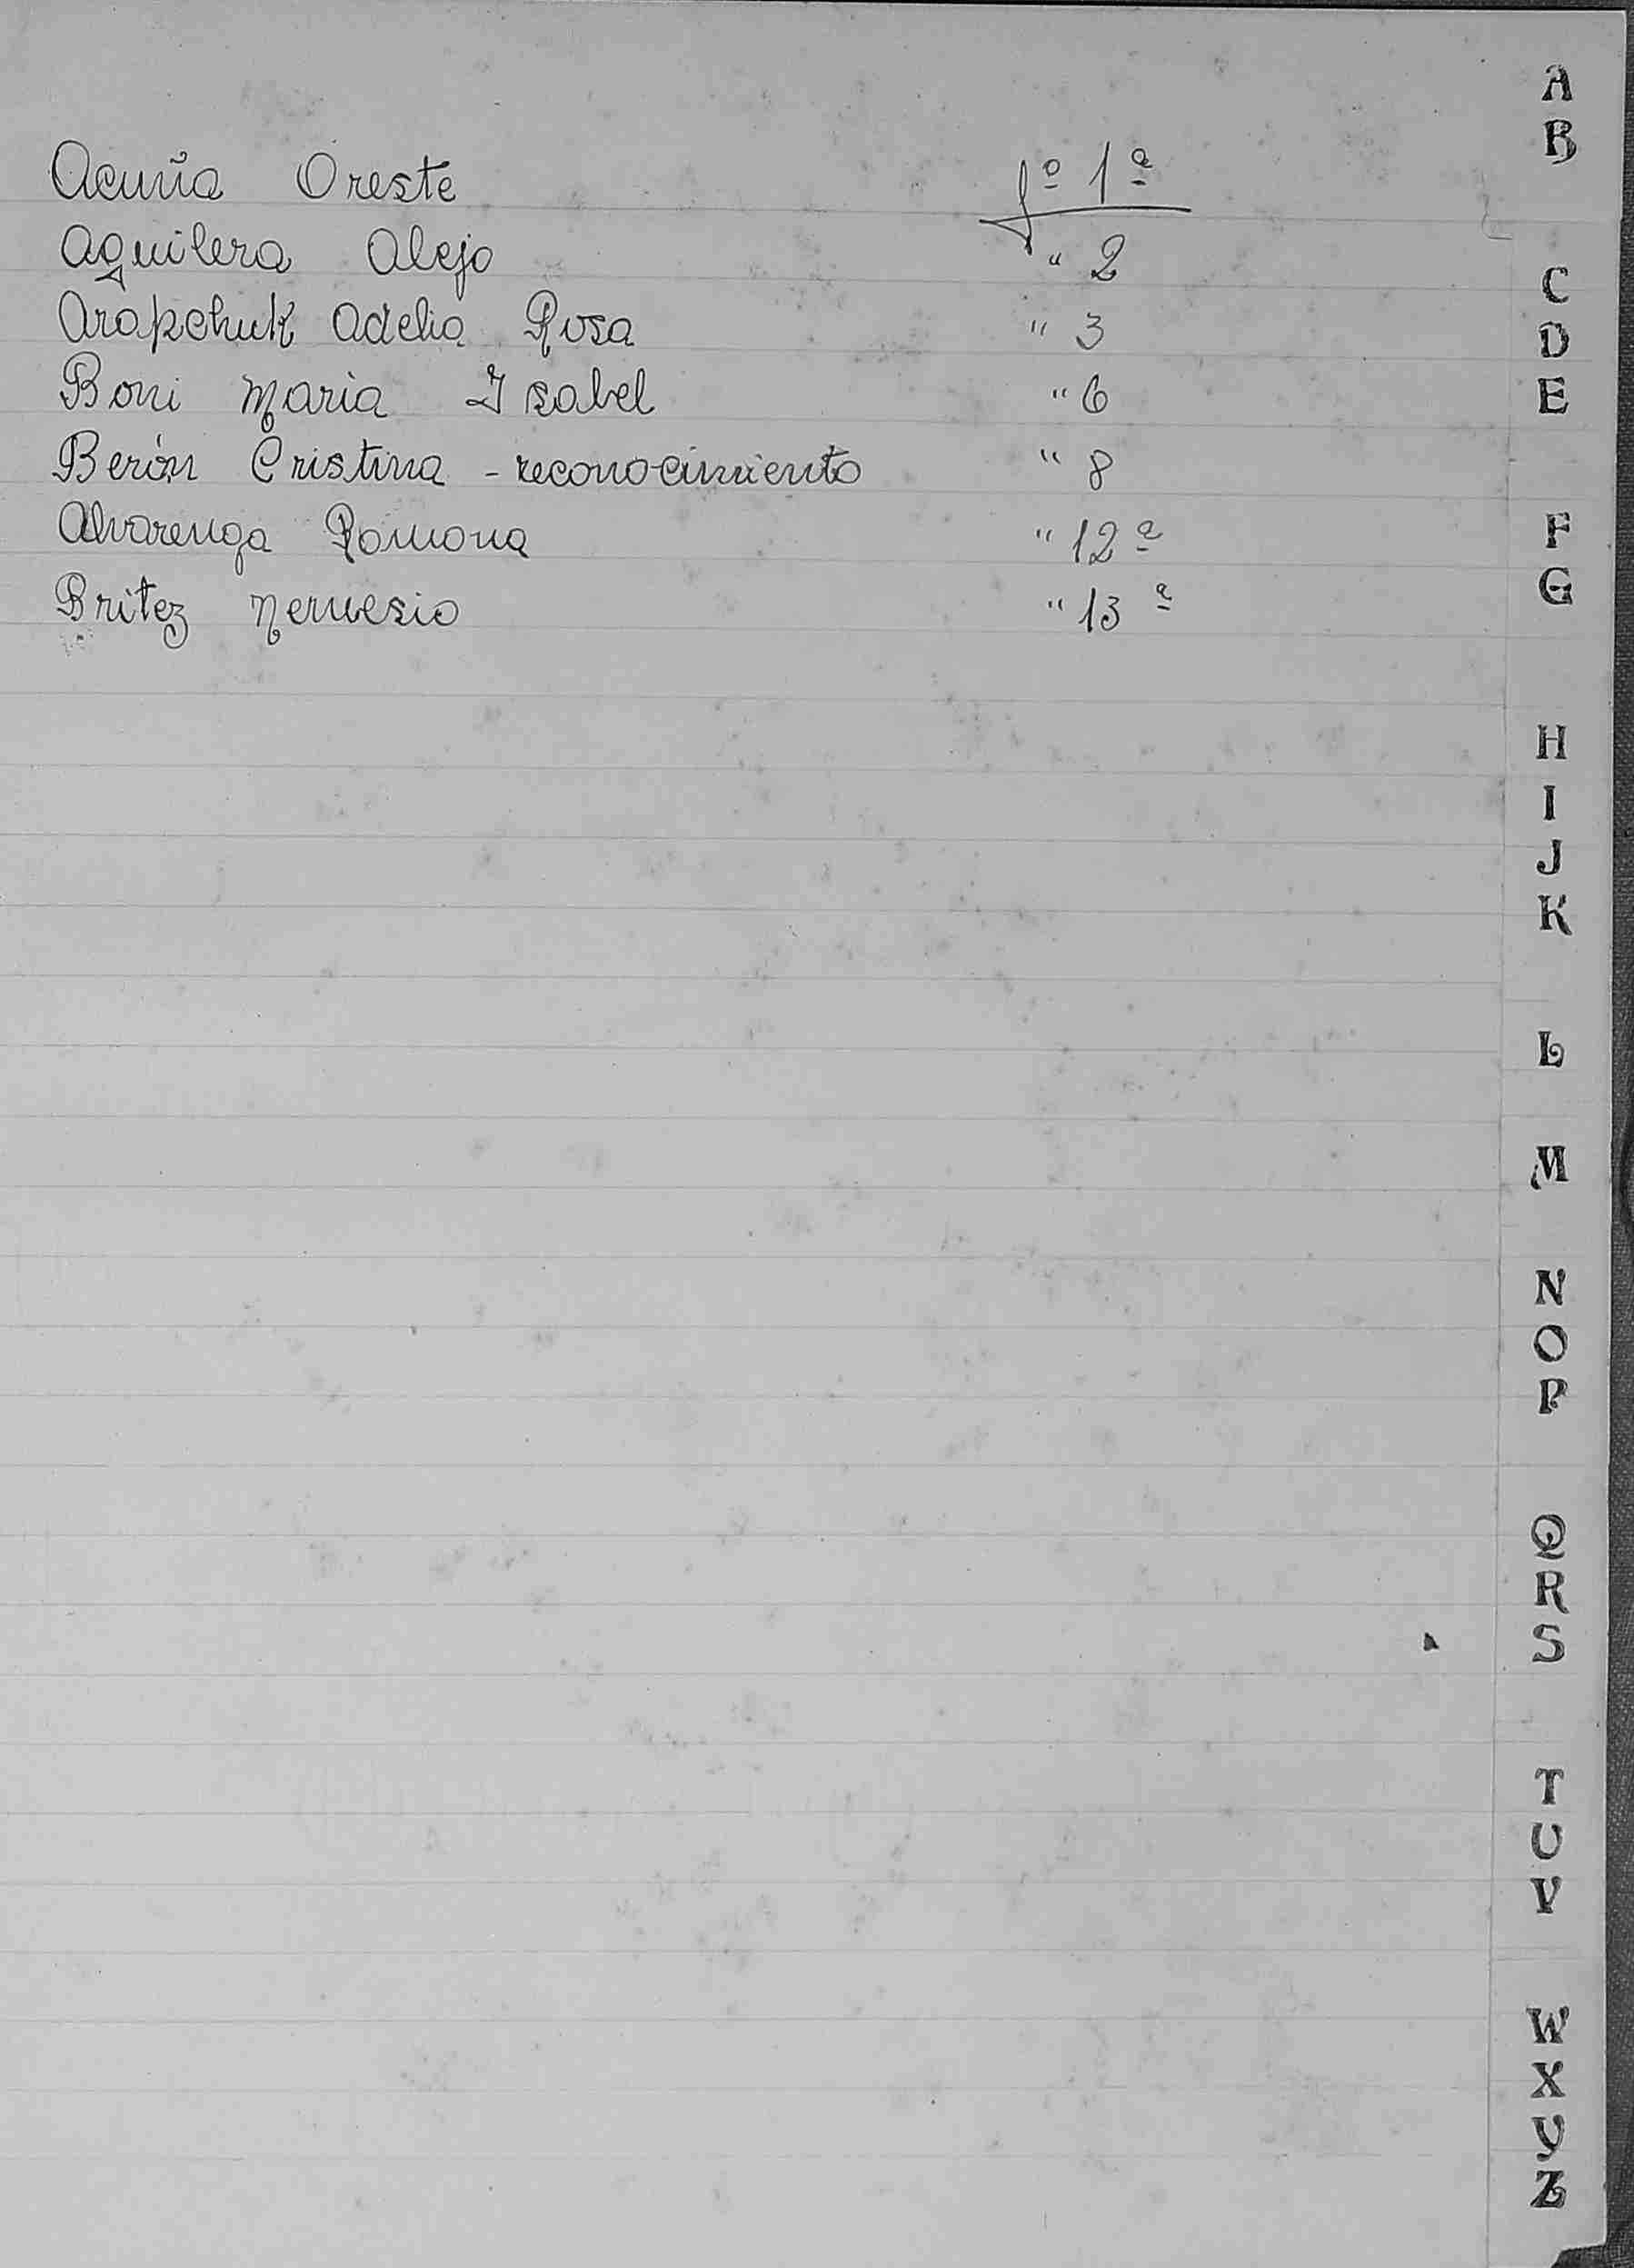 Acuña Oreste fº 1ª
Aguilera Alejo " 2
Arapchuk Adelia Rosa " 3
Boni Maria Isabel " 6
Berón Cristina - reconocimiento " 8
Alvarenga Ramona " 12ª
Britez Nemesio " 13ª
A
B
C
D
E
F
G
H
I
J
K
L
M
N
O
P
Q
R
S
T
U
V
W
X
Y
Z